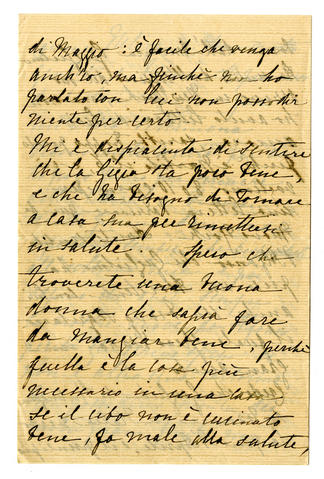 di Maggio: è facile che venga
anch'io, ma finchè non ho
parlato con lui non posso dir
niente per certo
Mi è dispiaciuta di sentire
che la Gigia sta poco bene,
e che ha bisogno di tornare
a casa sua per rimettersi
in salute Spero che
troverete una buona
donna che sapia fare
da mangiar bene, perchè
quella è la cosa più
necessario in una casa
se il cibo non è cucinato
bene, fa male alla salute,